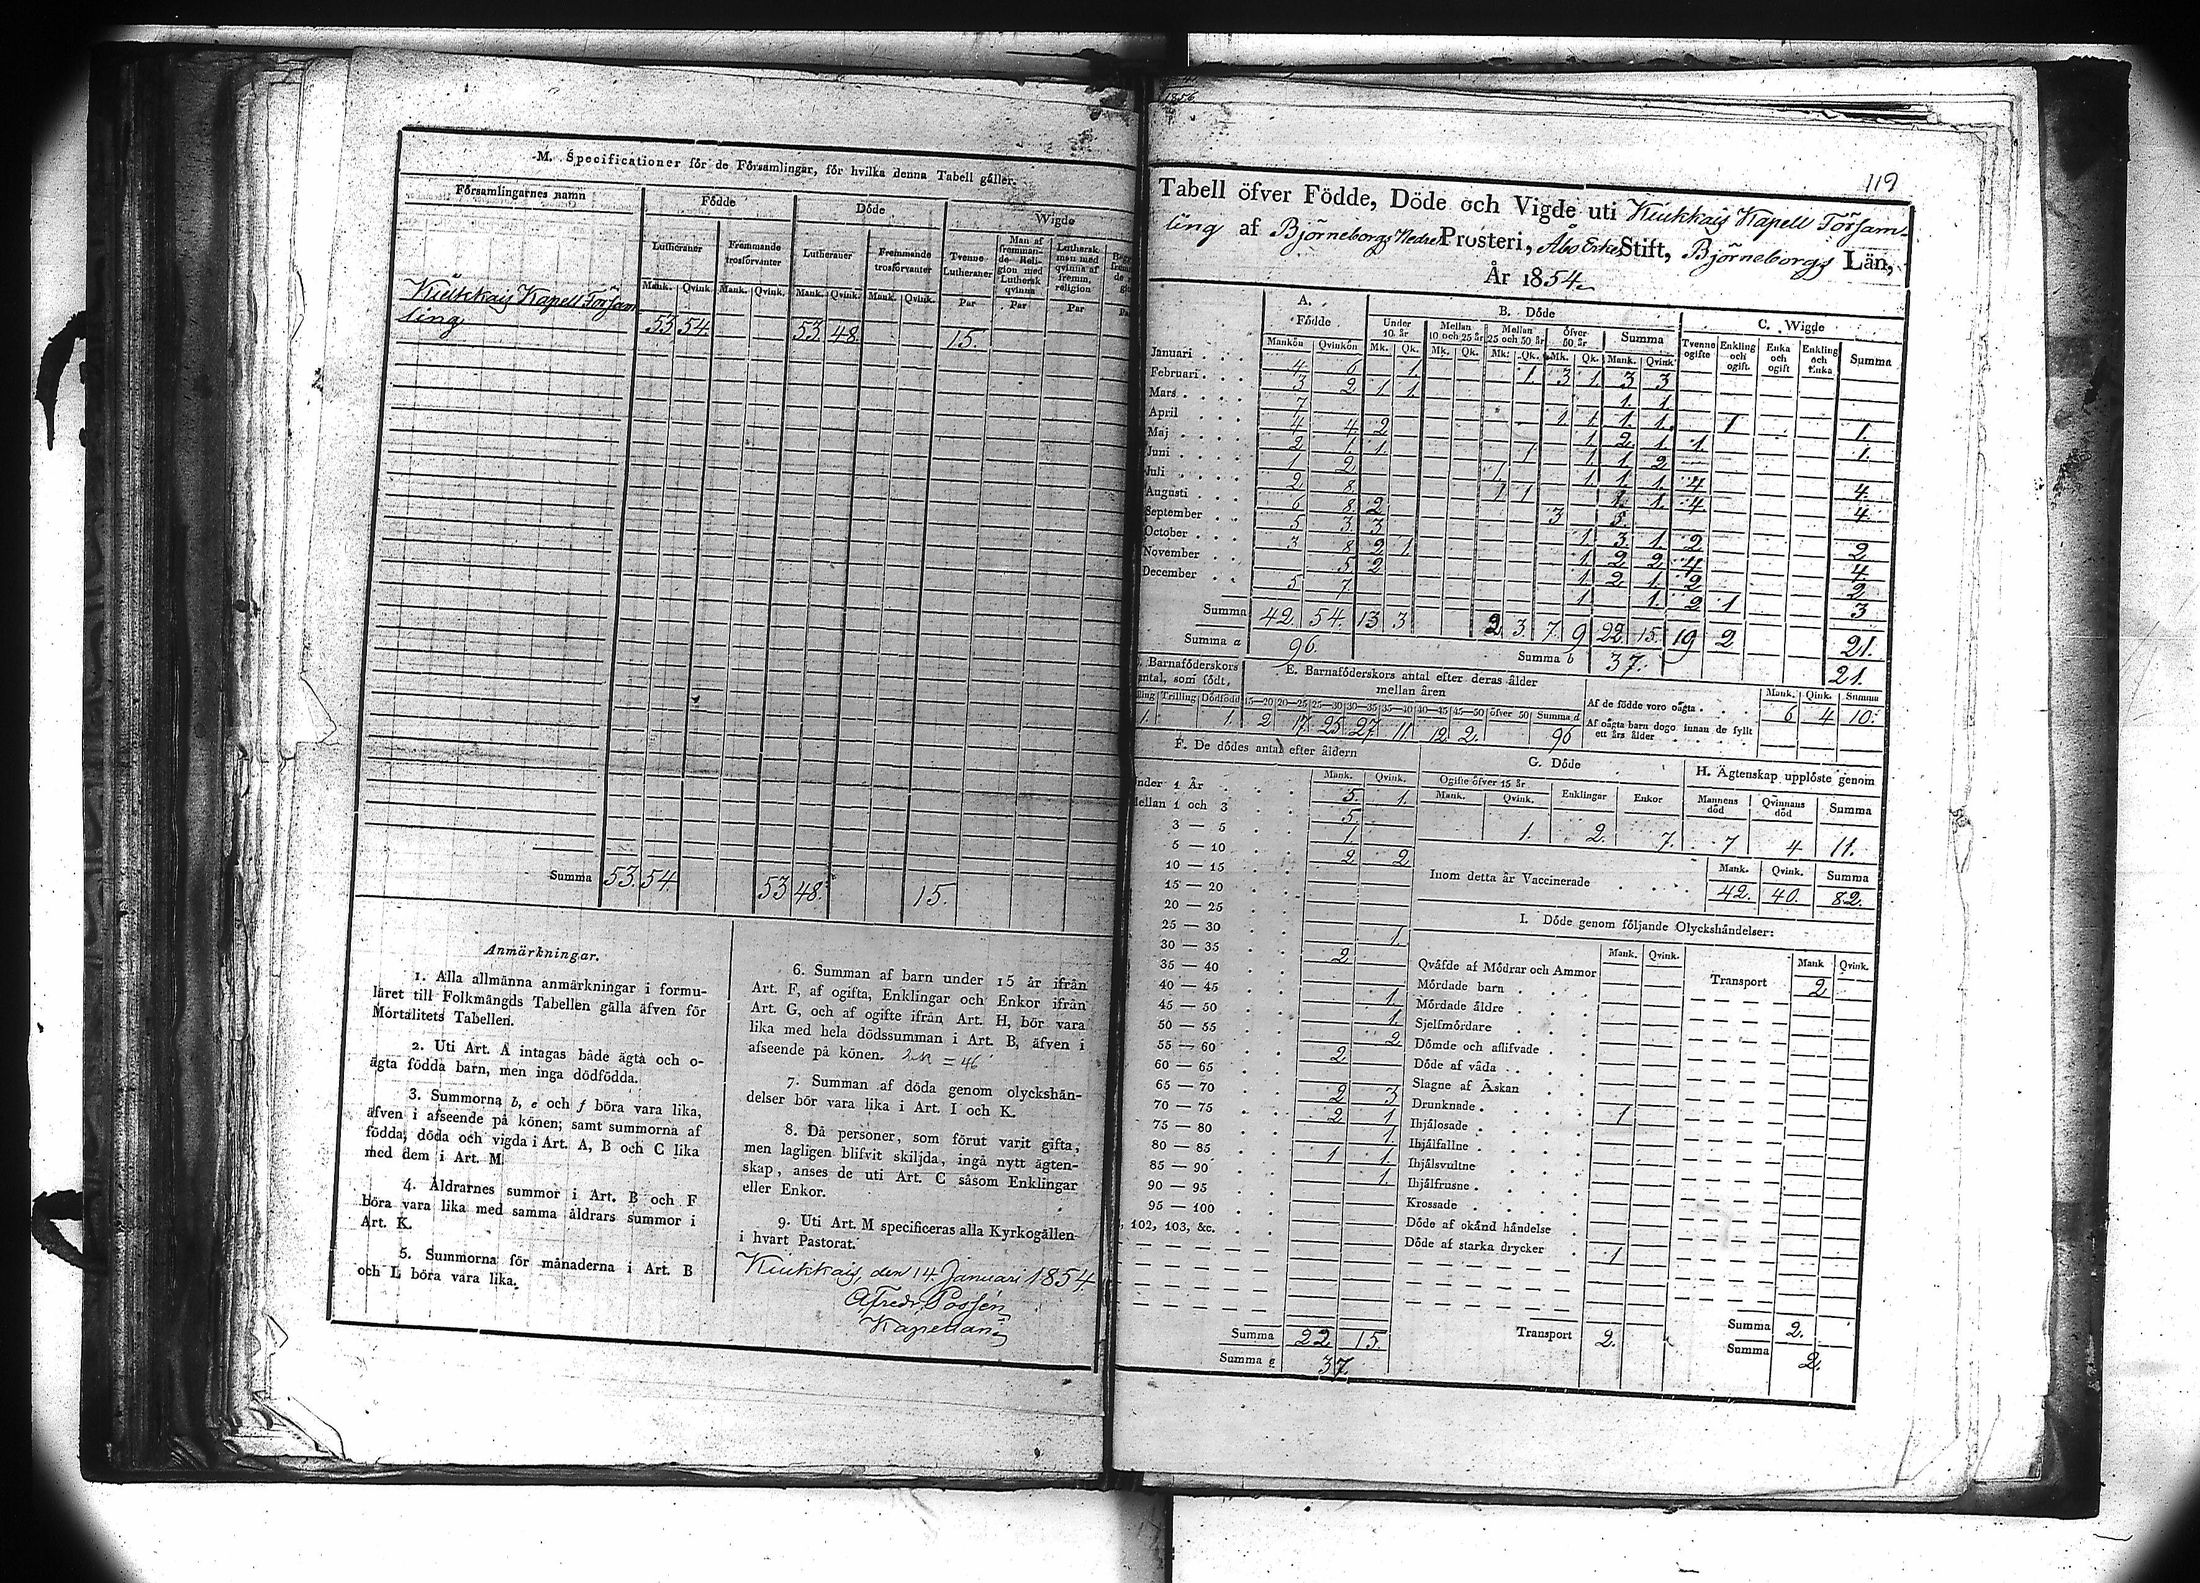 M. Specificationer för de Församlingar, för hvilka denna Tabell gäller.
Församlingarnes namn Födde Döde Wigde
Lutheraner Fremmande trosförvanter Lutheraner Fremmande trosförvanter Tvenne Lutheraner Man af fremmande Religion med Luthersk qvinna Luthersk man med qvinna af fremm. religion
Mank. Qvink. Mank. Qvink. Mank. Qvink. Mank. Qvink. Par Par Par
Kiukkais Kapell Försam
ling 53 54. 53. 48. 15.
Summa 53. 54. 53 48. 15.
Anmärkningar.
1. Alla allmänna anmärkningar i formu-
läret till Folkmängds Tabellen gälla äfven för
Mortalitets Tabellen.
2. Uti Art. A intagas både ägta och o-
ägta födda barn, men inga dödfödda.
3. Summorna b, e och f böra vara lika,
äfven i afseende på könen; samt summorna af
födda, döda och vigda i Art. A, B och C lika
med dem i Art. M.
4. Åldrarnes summor i Art. B och F
böra vara lika med samma åldrars summor i
Art. K.
5. Summorna för månaderna i Art. B
och L böra vara lika.
6. Summan af barn under 15 år ifrån
Art. F, af ogifta, Enklingar och Enkor ifrån
Art. G, och af ogifte ifrån Art. H, bör vara
lika med hela dödssumman i Art. B, äfven i
afseende på könen. = 46
7. Summan af döda genom olyckshän-
delser bör vara lika i Art. I och K.
8. Då personer, som förut varit gifta,
men lagligen blifvit skiljda, ingå nytt ägten-
skap, anses de uti Art. C såsom Enklingar
eller Enkor.
9. Uti Art. M specificeras alla Kyrkogällen
i hvart Pastorat.
Kiukkais, den 14. Januari 1854.
Alfred Possén
Kapellan
1856
119
Tabell öfver Födde, Döde och Vigde uti Kiukkais Kapell Försam-
ling af Björneborgs Nedre Prosteri, Åbo Erke Stift, Björneborgs Län,
År 1854
A. Födde B. Döde C. Wigde
Under 10 år Mellan 10 och 25 år Mellan 25 och 50 år öfver 50 år Summa Tvenne ogifte Enkling och ogift Enka och ogift Enkling och Enka Summa
Mankön Qvinkön Mk. Qk. Mk. Qk. Mk. Qk. Mk. Qk. Mank. Qvink.
Januari 4 6 1 1. 3 1. 3 3
Februari 3 2 1 1 1. 1.
Mars 7 1 1 1. 1. 1 1.
April 4 4 2 1 2 1 1. 1.
Maj 2 1. 1. 1 1. 1 2
Juni 1 2 1. 1 1. 1. 4 4.
Juli 2 8 1 1 1. 1. 4 4.
Augusti 6 8 2 3
September 5 3 3 1. 3 1. 2 2
October 3 8 2 1 1 2 2 4 4.
November 5 2 1 2 1. 2 2
December 5 7. 1 1. 2 1 3
Summa 42. 54. 13 3 2 3. 7. 9 22. 15. 19 2 21.
Summa a 96. Summa b 37. 21.
Barnaföderskors antal, som födt,
Trilling Dödfödd
1. 1.
E. Barnaföderskors antal efter deras ålder
mellan åren
15—20 20—25 25—30 30—35 35—40 40—45 45—50 öfver 50 Summa d
2 17. 25 27 11 12. 2. 96
Mank. Qink. Summa
Af de födde voro oägta 6 4 10.
Af oägta barn dogo innan de fyllt
ett års ålder
F. De dödes antal efter åldern
Mank. Qvink.
Under 1 År 5. 1.
Mellan 1 och 3 5
3 — 5 1.
5 — 10 2 2
10 — 15
15 — 20
20 — 25
25 — 30 1.
30 — 35 2
35 — 40
40 — 45 1.
45 — 50 1.
50 — 55 2
55 — 60 2
60 — 65
65 — 70 2 3
70 — 75 2 1
75 — 80 1
80 — 85 1 1.
85 — 90 1.
90 — 95
95 — 100
102, 103, &c.
Summa 22 15.
Summa e 37.
G. Döde
Ogifte öfver 15 år Enklingar Enkor
Mank. Qvink.
1. 2. 7.
H. Ägtenskap upplöste genom
Mannens död Qvinnans död Summa
7 4 11.
Inom detta år Vaccinerade Mank. Qvink. Summa
42. 40. 82.
I. Döde genom följande Olyckshändelser:
Mank. Qvink. Mank Qvink.
Qväfde af Mödrar och Ammor Transport 2
Mördade barn
Mördade äldre
Sjelfmördare
Dömde och aflifvade
Döde af våda
Slagne af Åskan
Drunknade 1
Ihjälosade
Ihjälfallne
Ihjälsvultne
Ihjälfrusne
Krossade
Döde af okänd händelse
Döde af starka drycker 1
Transport 2. Summa 2.
Summa 2.